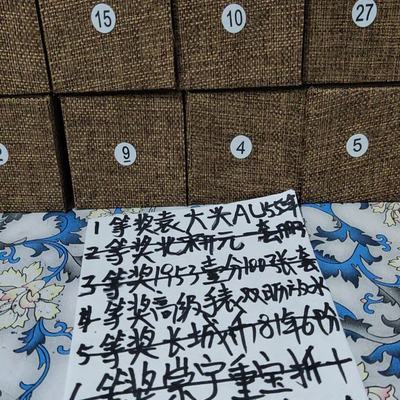 15
10
27
2
9
4
5
1等奖袁大头AU55
2等奖 元一套
3等奖1953壹分100张一套
4等奖高级手表双日
5等奖长城 81年6
等奖崇宁重宝折十